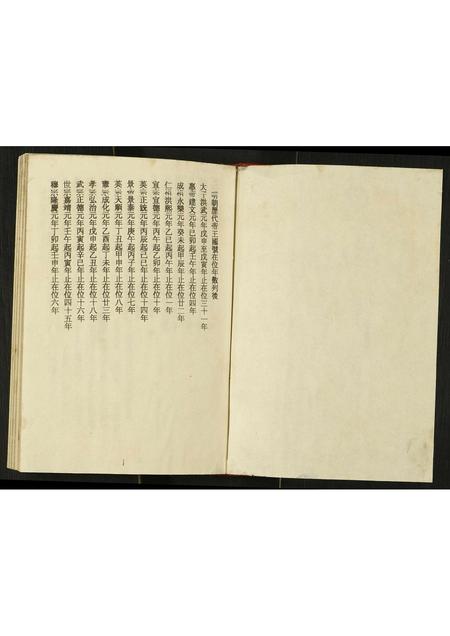 一明朝歷代帝王國號在位年數列後
太宗洪武元年戊申至戊寅年止在位三十一年
惠帝建文元年已卯起壬午年止在位四年
成祖永樂元年癸未起甲辰年止在位廿二年
仁宗洪熙元年乙巳起丙午年止在位一年
宣宗宣德元年丙午起乙卯年止在位十年
英宗正統元年丙辰起己巳年止在位十四年
景宗景泰元年庚午起丙子年止在位七年
英宗天順元年丁丑起甲申年止在位八年
憲宗成化元年乙酉起丁未年止在位廿三年
孝宗弘治元年戊申起乙丑年止在位十八年
武宗正德元年丙寅起辛巳年止在位十六年
世宗嘉靖元年壬午起丙寅年止在位四十五年
穆宗隆慶元年丁卯起壬申年止在位六年